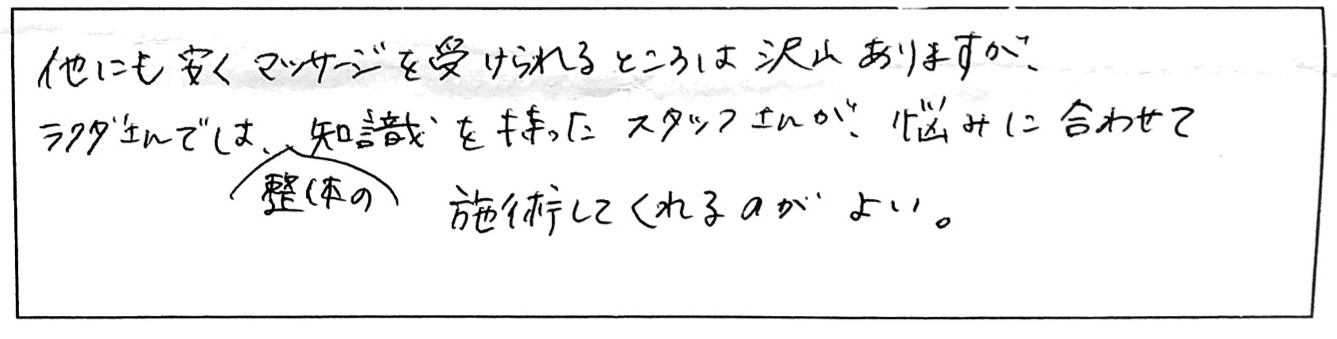 他にも安くマッサージを受けられるところは沢山ありますが、
ラクダさんでは、整体の知識を持ったスタッフさんが、悩みに合わせて
施術してくれるのがよい。